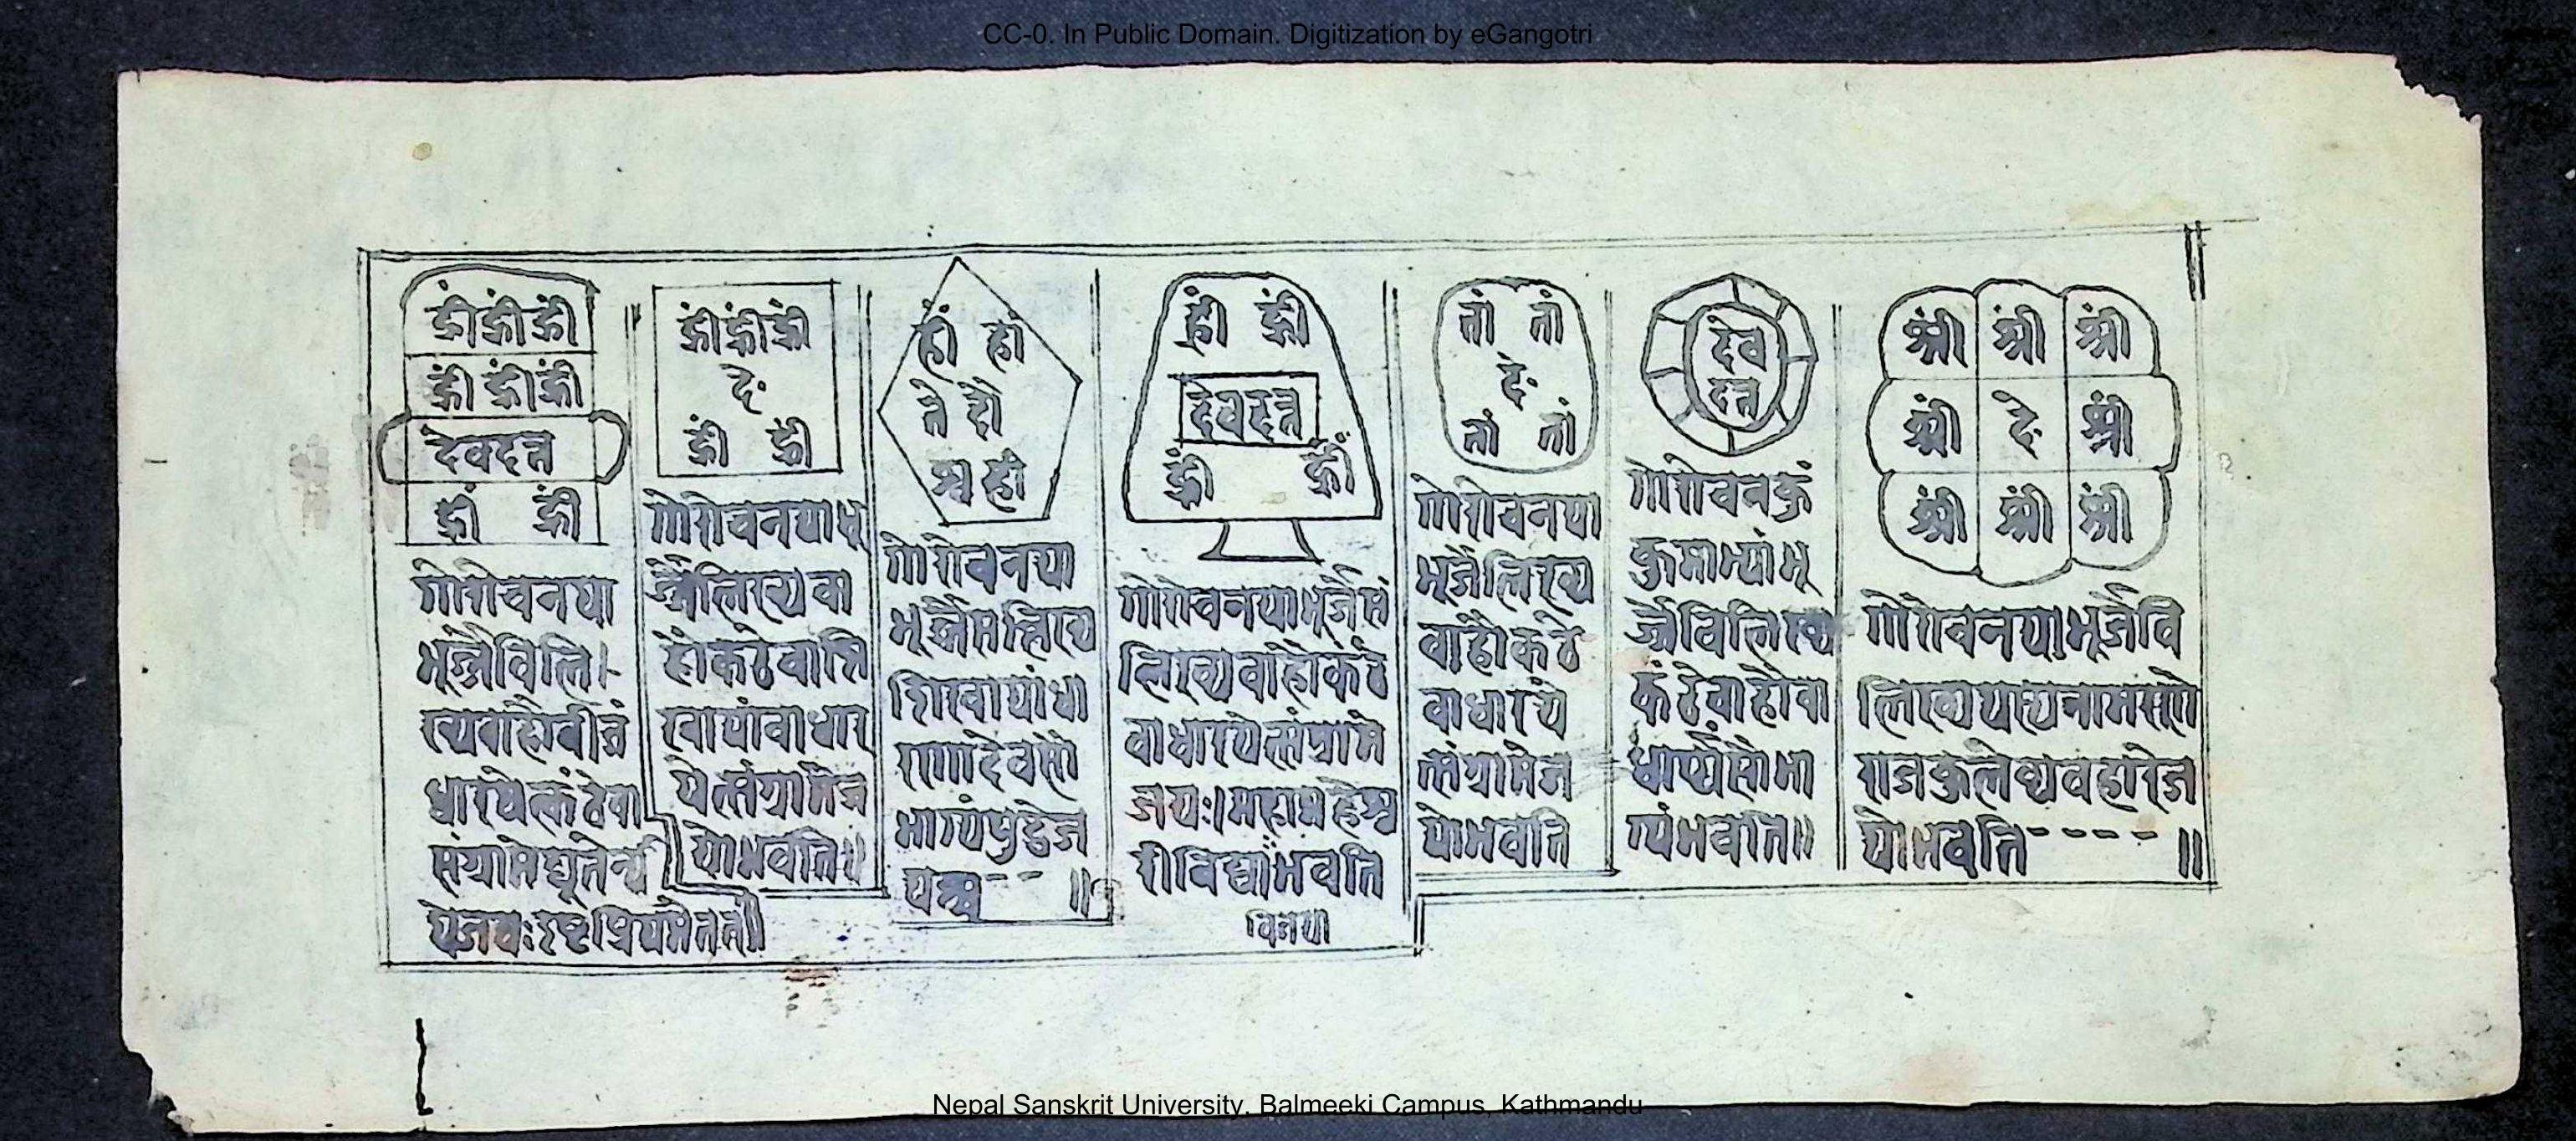 CC-0. In Public Domain. Digitization by eGangotri
ह्रीं ह्रीं ह्रीं
ह्रीं ह्रीं ह्रीं
देवदत्त
ह्रीं ह्रीं
गोरोचनया
भूर्ज्जेविलि
ख्यवाहौवीजं
धारयेत्कंठेवा
संग्रामेद्यूतेन्य
येजयः
ह्रीं ह्रीं ह्रीं
दः
ह्रीं ह्रीं
गोरोचनयाभू
र्ज्जेलिख्यवा
हौकंठेवाशि
खायांवाधार
येत्संग्रामेज
योभवति॥
गोरोचनया
भूर्ज्जेसंलिख्य
शिखायांधा
रणादेवसौ
भाग्यं
देवदत्त
गोरोचनयाभूर्जेसं
लिख्यवाहौकंठे
वाधारयेत्संग्रामे
जयः।महामहेश्व
रीविद्यांभवति
विजया
तां तां
दः
तां तां
गोरोचनया
भूर्जेलिख्य
वाहौकंठे
वाधारये
त्संग्रामेज
योभवति
देव
दत्त
गोरोचनकुं
कुमाभ्यांभू
र्ज्जेविलिख्य
कंठेवाहौवा
धार्यसौभा
ग्यंभवति॥
श्रीं श्रीं श्रीं
श्रीं दः श्रीं
श्रीं श्रीं श्रीं
गोरोचनयाभूर्जेवि
लिख्ययस्यनामसरणे
राजकुलेव्यवहारेज
योभवति - - - - ॥
Nepal Sanskrit University, Balmeeki Campus, Kathmandu